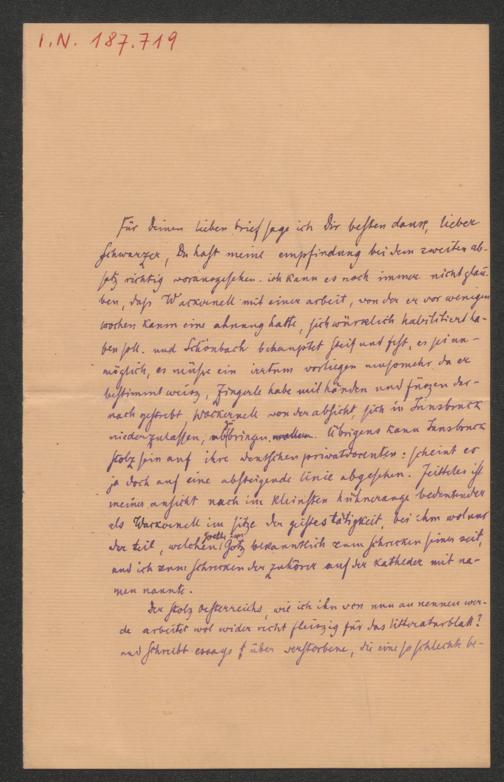 I.N. 187.719
Für Deinen lieben brief sage ich Dir besten dank, lieber
Schwarzer, Du hast meine empfindung bei dem zweiten ab-
satz richtig vorausgesehen. ich kann es noch immer nicht glau-
ben, dass Wackernell mit einer arbeit, von der er vor wenigen
wochen kaum eine ahnung hatte, sich würklich habilitiert ha-
ben soll. und Schönbach behauptet steif und fest, es sei un-
möglich, es müsse ein irrtum vorliegen umsomehr da er
bestimmt weisz, Zingerle habe mit händen und füszen dar-
nach gestrebt Wackernell von der absicht, sich in Innsbruck
niederzulassen, abzubringen. Übrigens kann Innsbruck
stolz sein auf ihre deutschen privatdocenten: scheint es
ja doch auf eine absteigende linie abgesehen. Zeitteles ist
meiner ansicht nach im kleinsten hühnerauge bedeutender
als Wackernell im sitze der geistestätigkeit, bei ihm wol nur
der teil, welchen Goethe im Götz bekanntlich zum schrecken seiner zeit,
und ich zum schrecken der zuhörer auf der katheder mit na-
men nannte.
Der stolz Oesterreichs, wie ich ihn von nun an nennen wer-
de arbeitet wol wider recht fleiszig für das litteraturblatt?
und schreibt essays über verstorbene, die eine so schlechte be-